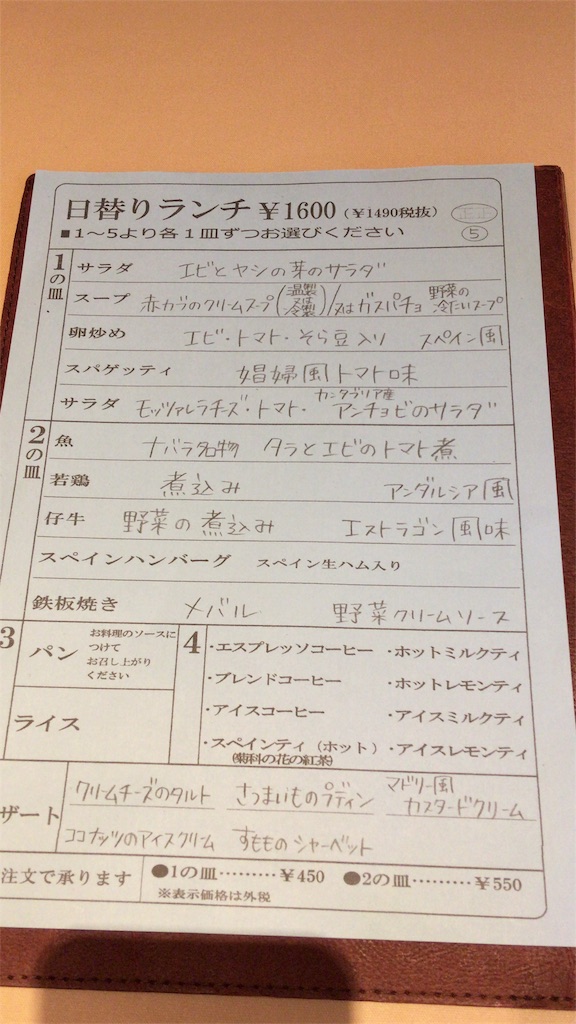 日替りランチ ¥1600 (¥1490税抜)
■1〜5より各1皿ずつお選びください ⑤
1の皿
サラダ エビとヤシの芽のサラダ
スープ 赤カブのクリームスープ(温製又は冷製)/又はガスパチョ 野菜の冷たいスープ
卵炒め エビ・トマト・そら豆入り スペイン風
スパゲッティ 娼婦風トマト味
サラダ モッツァレラチーズ・トマト・カンタブリア産アンチョビのサラダ
2の皿
魚 ナバラ名物 タラとエビのトマト煮
若鶏 煮込み アンダルシア風
仔牛 野菜の煮込み エストラゴン風味
スペインハンバーグ スペイン生ハム入り
鉄板焼き メバル 野菜クリームソース
3
パン お料理のソースに
つけて
お召し上がり
ください
ライス
4
・エスプレッソコーヒー ・ホットミルクティ
・ブレンドコーヒー ・ホットレモンティ
・アイスコーヒー ・アイスミルクティ
・スペインティ(ホット) ・アイスレモンティ
(菊科の花の紅茶)
ザート クリームチーズのタルト さつまいものプディン マドリー風カスタードクリーム
ココナッツのアイスクリーム すもものシャーベット
注文で承ります ●1の皿………¥450 ●2の皿………¥550
※表示価格は外税